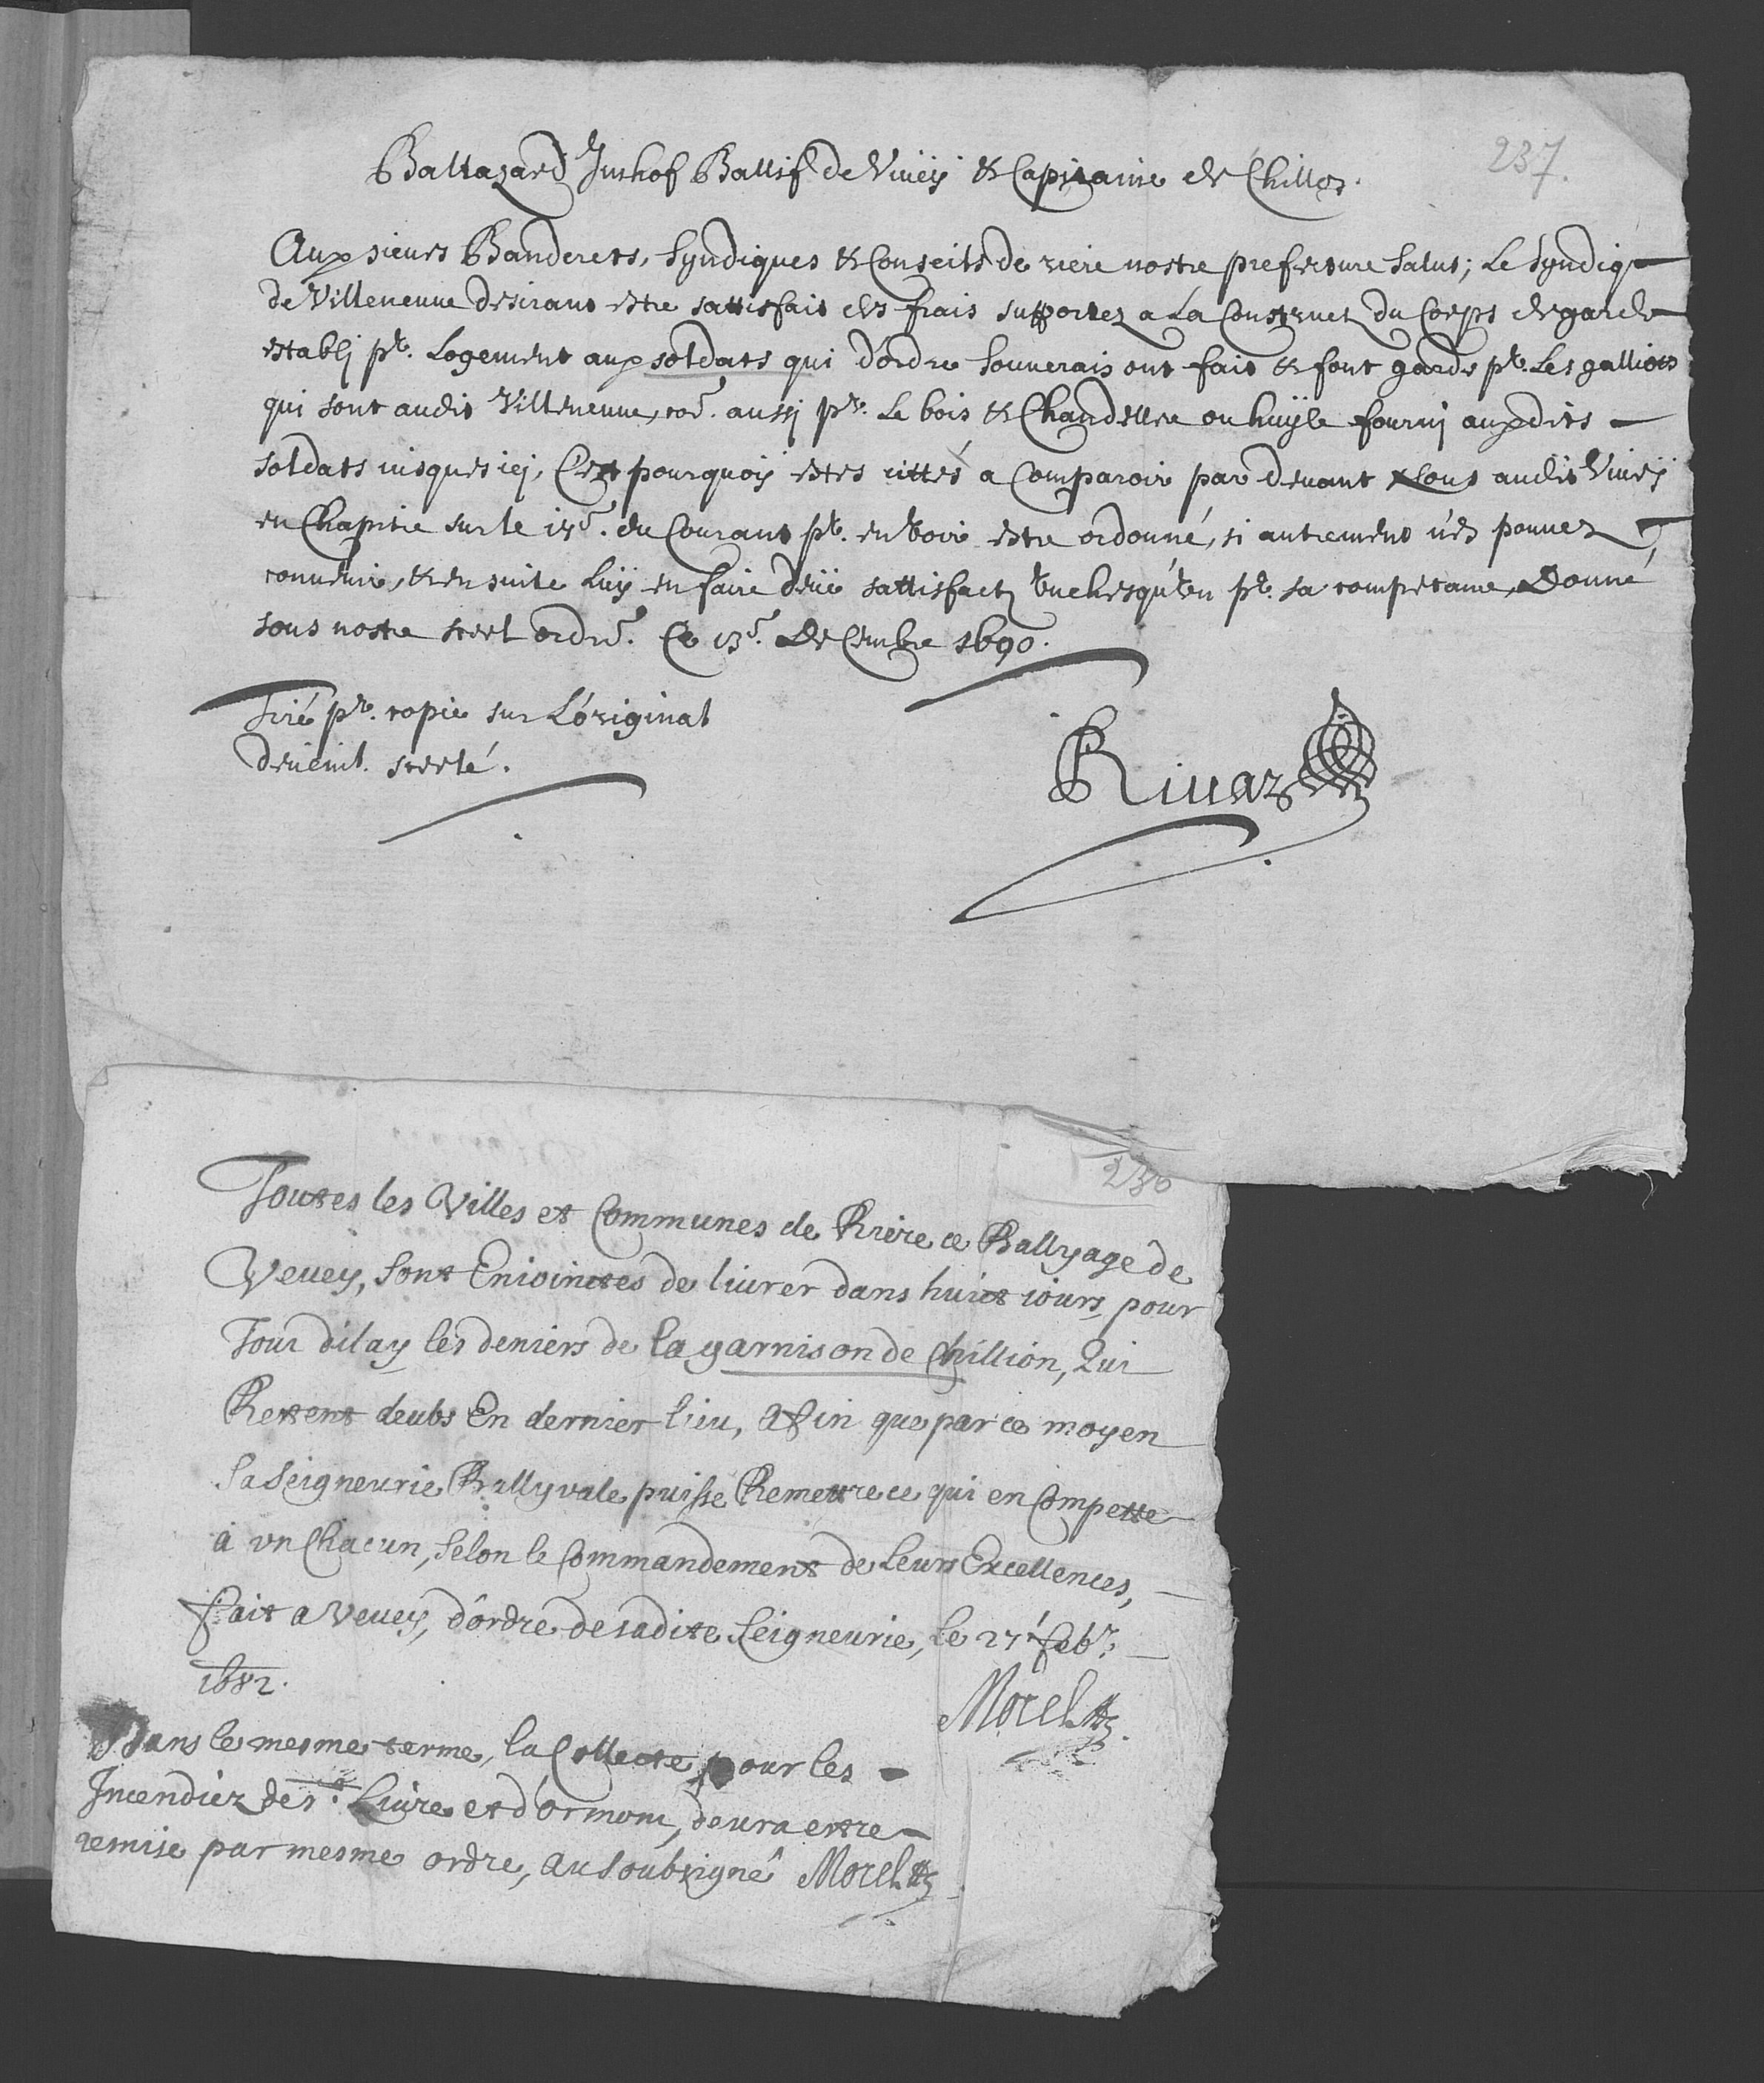 237.
Baltazard Imhof Ballif de Vivëy & Capitaine de Chillon.
Aux sieurs Banderets, Syndiques & Conseils de riere nostre prefecture salut; Le Syndiq
de Villeneuve desirant estre sattisfait des frais supportez a La Construct. du Corps de garde
establj pr. Logement aux soldats qui d'ordre souverain ont fait & font garde pr. Les galliots
qui sont audit Villeneuve, coe. aussj pr. Le bois & Chandelle ou huÿle fournj auxdits
soldats iusques icj, C'est pourquoÿ estes cittés a Comparoir par devant Nous audit Vivëÿ
en Chapitre sur le 15e. du Courant pr. en voir estre ordonné, si autrement n'en pouvez
convenir, & en suite Luÿ en faire deüe sattisfact. un chesqu'un pr. sa competance, Donné
sous nostre sceel ordre. Ce 13e. Decembre 1690.
Tiré pr. copie sur L'original
deuëmt. sceelé.
Rivaz
230
Toutes les Villes et Communes de Rière ce Ballyage de
Vevey, sont Enioinctes de livrer dans huict iours, pour
Tout dilay les deniers de la garnison de Chillion, Qui
Restent deubs En dernier lieu, Afin que par ce moyen
Sa Seigneurie Ballyvale puisse Remettre ce qui en Compette
à vn Chacun, Selon le Commandement de Leurs Excellences,
fait a Vevey, d'ordre de sadite Seigneurie, le 27e febr.
1682.
Morel
Dans le mesme terme, la Collecte pour les
Incendiez de St. Livre et d'Ormont, devra estre
remise par mesme ordre, au soubsigné Morel